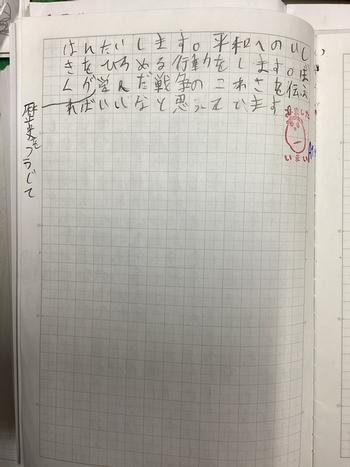 はんたいします。平和へのいし
きをひろめる行動をします。ぼ
くが学んだ戦争のこわさを伝え
ればいいなと思っています
歴史をつうじて
いまい